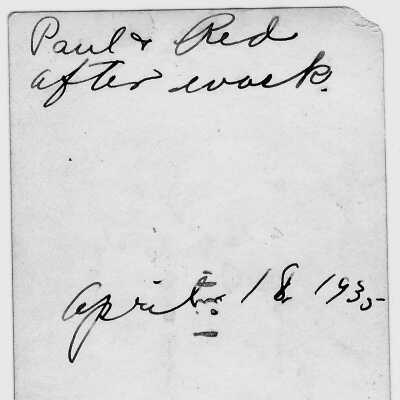 Paul & Red
after work.
April 18, 1935